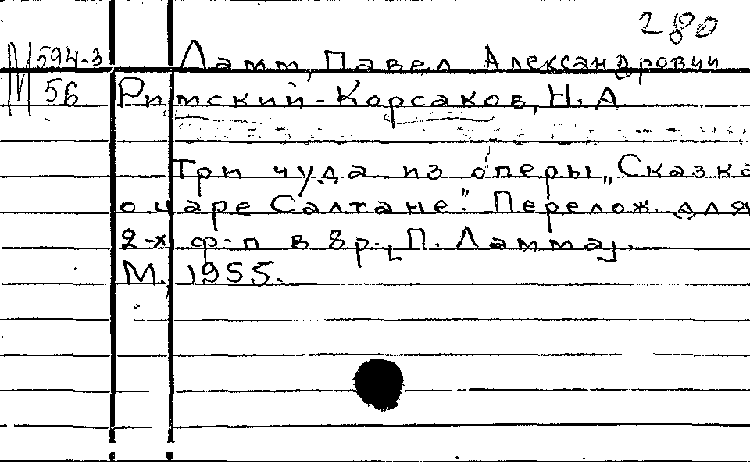 280
М 594-3 Ламм, Павел Александрович
56 Римский-Корсаков, Н. А
Три чуда из оперы „Сказка
о царе Салтане". Перелож. для
2-х ф-п в 8 р. [П. Ламма].
М., 1955.